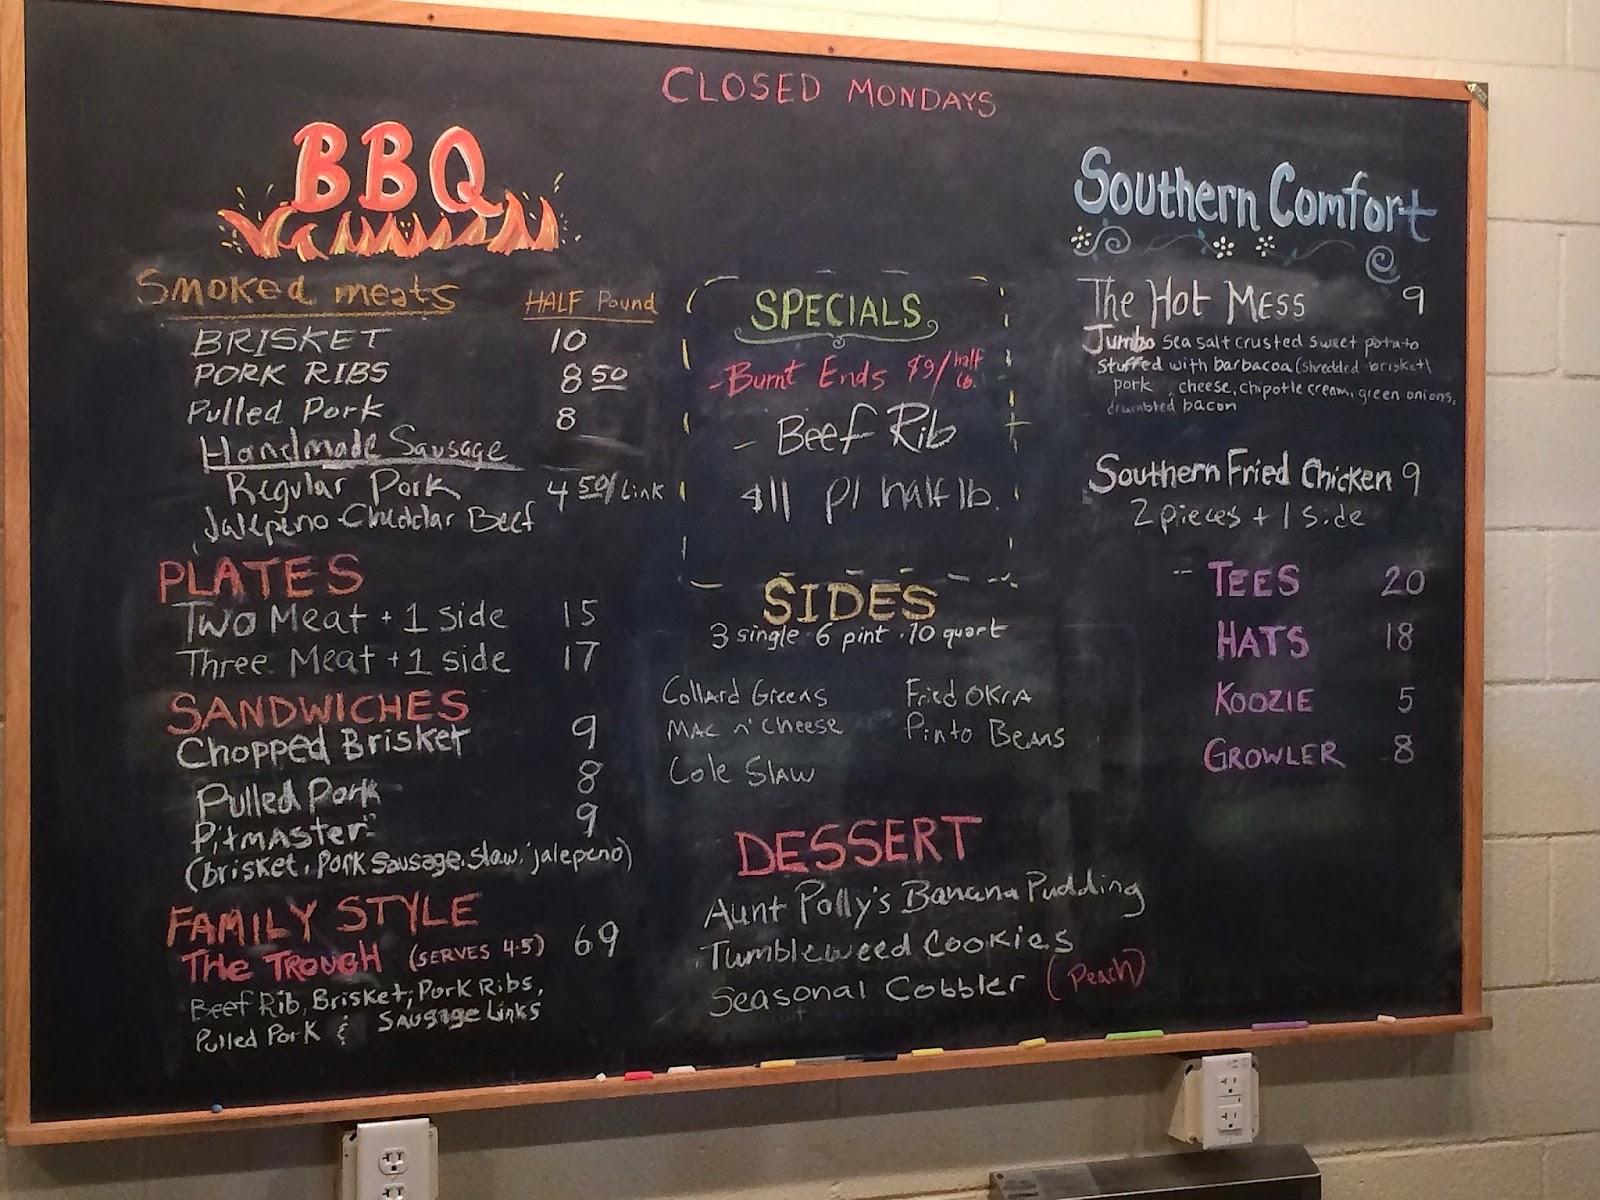 CLOSED MONDAYS
BBQ
Smoked meats HALF Pound
BRISKET 10
PORK RIBS 8 50
Pulled Pork 8
Handmade Sausage
Regular Pork 4 50/Link
Jalepeno-Cheddar Beef
PLATES
Two Meat + 1 side 15
Three Meat + 1 side 17
SANDWICHES
Chopped Brisket 9
Pulled Pork 8
Pitmaster 9
(brisket, pork sausage, slaw, jalepeno)
FAMILY STYLE
THE TROUGH (SERVES 4-5) 69
Beef Rib, Brisket, Pork Ribs,
Pulled Pork & Sausage Links
SPECIALS
- Burnt Ends $9/half lb.
- Beef Rib
$11 p/ half lb.
SIDES
3 single · 6 pint · 10 quart
Collard Greens Fried OKRA
Mac n' Cheese Pinto Beans
Cole Slaw
DESSERT
Aunt Polly's Banana Pudding
Tumbleweed Cookies
Seasonal Cobbler (Peach)
Southern Comfort
The Hot Mess 9
Jumbo sea salt crusted sweet potato
stuffed with barbacoa (shredded brisket)
pork, cheese, chipotle cream, green onions,
drumbled bacon
Southern Fried Chicken 9
2 pieces + 1 side
TEES 20
HATS 18
KOOZIE 5
GROWLER 8